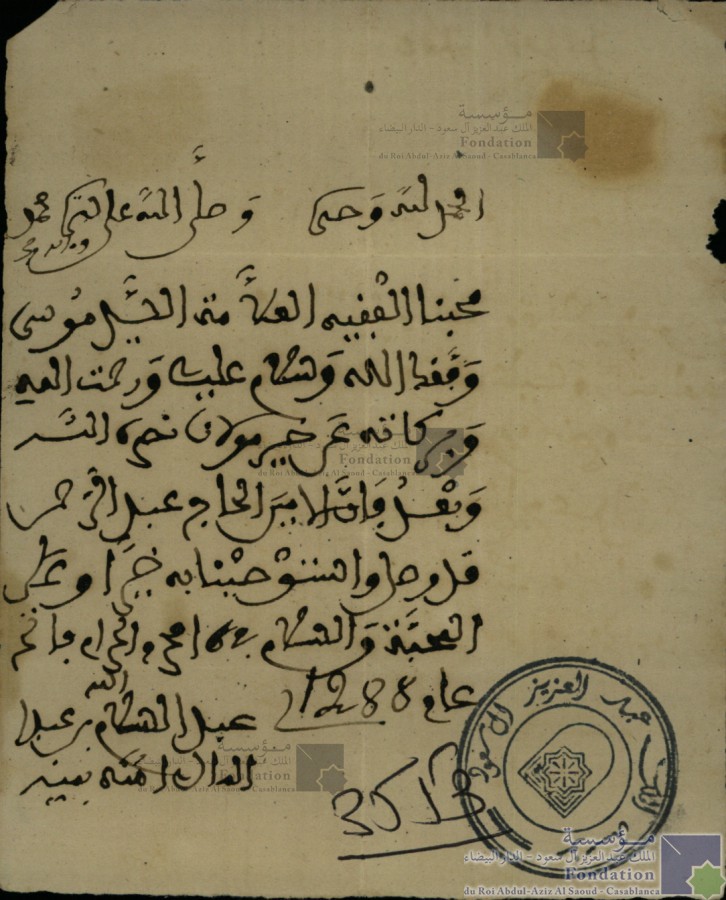 مؤسسة
الملك عبد العزيز آل سعود - الدار البيضاء
Fondation
du Roi Abdul-Aziz Al Saoud - Casablanca
الحمد لله وحده وصلى الله على النبي محمد
محبنا الفقيه العلامة السيد موسى
وفقك الله وسلام عليك ورحمت الله
وبركاته عن خير مولانا نصره الله
وبعد فإن الامين الحاج عبد الرحمن
قد وصل واستوصينا به خيرا وعلى
المحبة والسلام في 16 محرم الحرام فاتح
عام 1288
عبد السلام بن عبد الله
امنه الله بمنه
3515
مؤسسة
الملك عبد العزيز آل سعود - الدار البيضاء
Fondation
du Roi Abdul-Aziz Al Saoud - Casablanca
مؤسسة الملك عبد العزيز آل سعود
مؤسسة
الملك عبد العزيز آل سعود - الدار البيضاء
Fondation
du Roi Abdul-Aziz Al Saoud - Casablanca